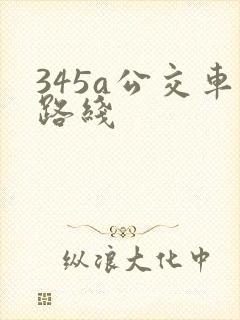 345a公交车
路线
纵浪大化中